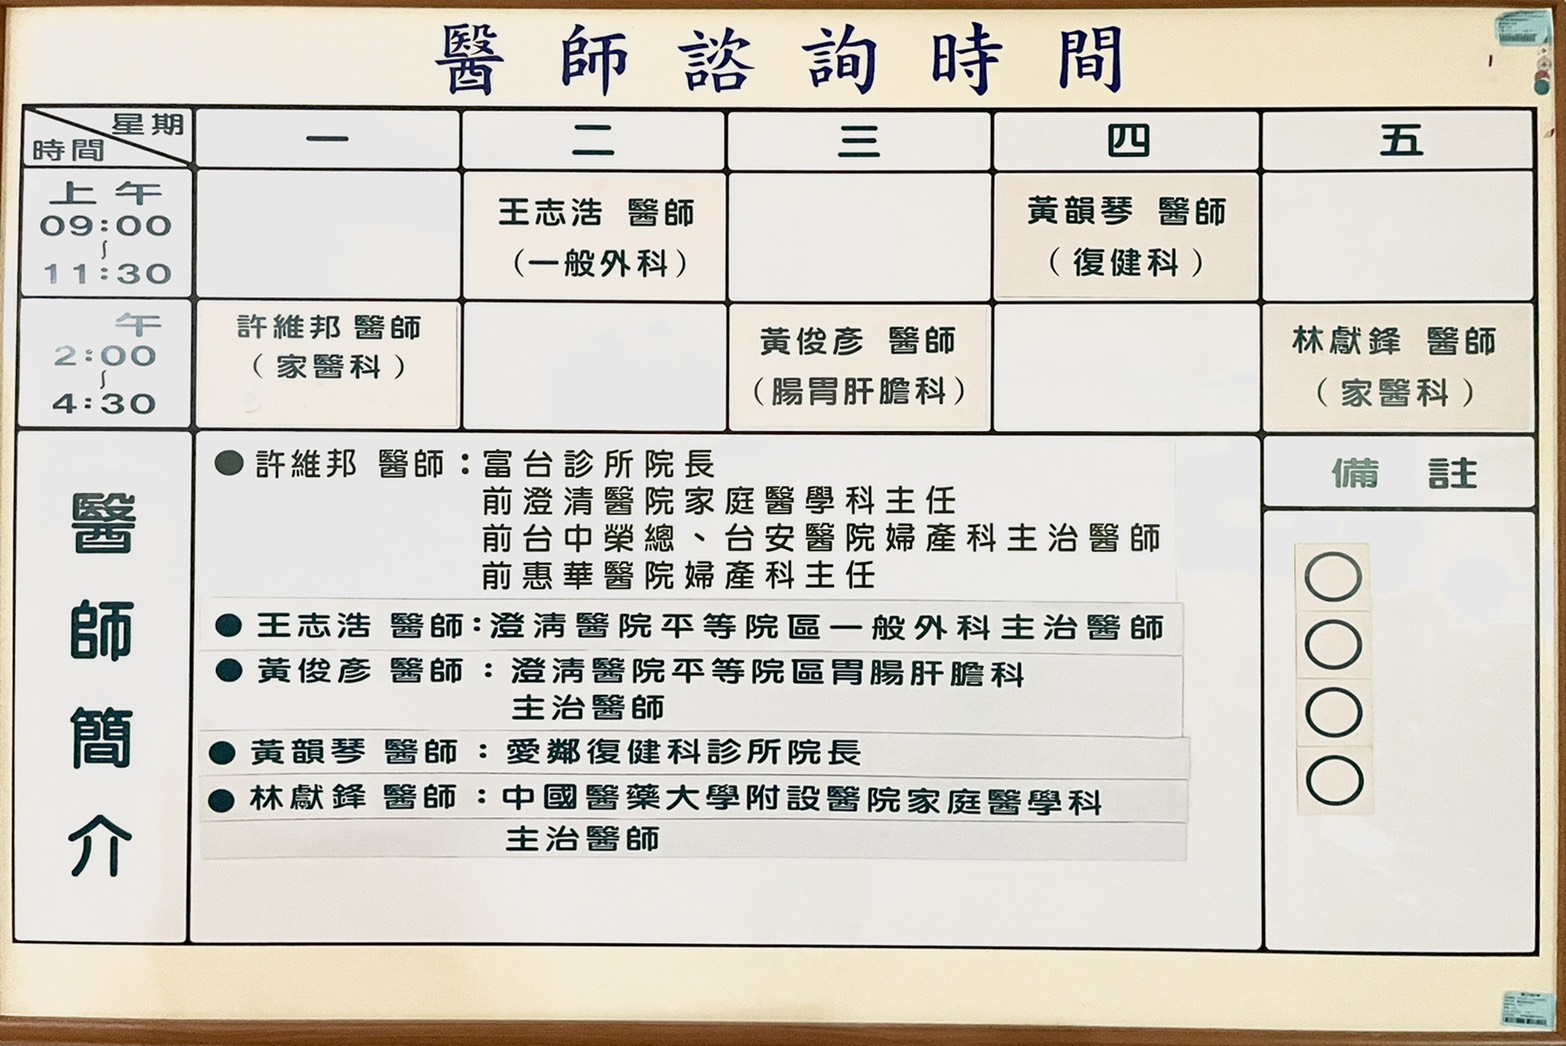 醫師諮詢時間
星期
時間
一 二 三 四 五
上午
09:00
~
11:30
王志浩 醫師
(一般外科)
黃韻琴 醫師
(復健科)
午
2:00
~
4:30
許維邦 醫師
(家醫科)
黃俊彥 醫師
(腸胃肝膽科)
林獻鋒 醫師
(家醫科)
醫師簡介
●許維邦 醫師:富台診所院長
前澄清醫院家庭醫學科主任
前台中榮總、台安醫院婦產科主治醫師
前惠華醫院婦產科主任
●王志浩 醫師:澄清醫院平等院區一般外科主治醫師
●黃俊彥 醫師:澄清醫院平等院區胃腸肝膽科
主治醫師
●黃韻琴 醫師:愛鄰復健科診所院長
●林獻鋒 醫師:中國醫藥大學附設醫院家庭醫學科
主治醫師
備註
○
○
○
○